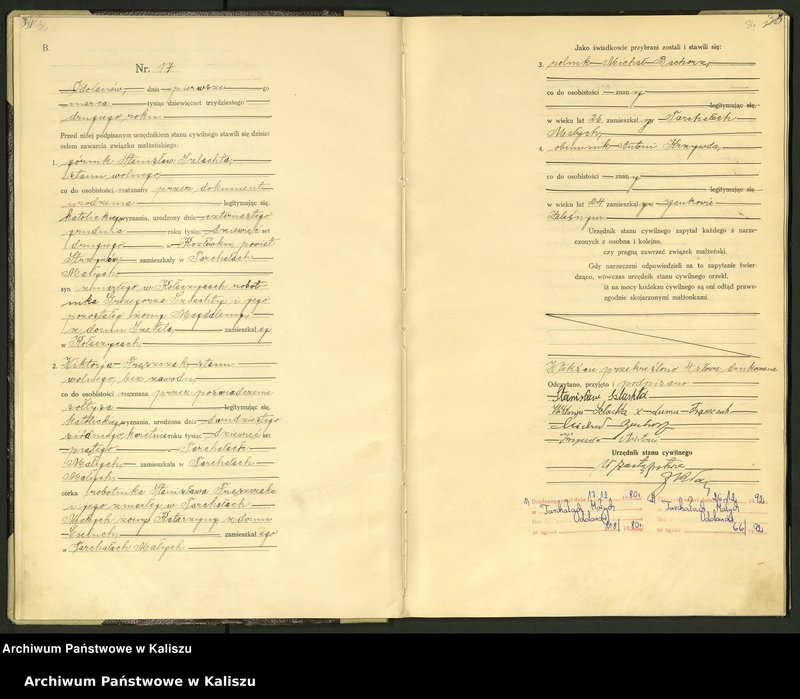 B.
Nr. 17
Odolanów, dnia pierwsze go
marca tysiąc dziewięćset trzydziestego
drugiego roku
Przed niżej podpisanym urzędnikiem stanu cywilnego stawili się dzisiaj
celem zawarcia związku małżeńskiego:
1. górnik Stanisław Szlachta,
stanu wolnego,
co do osobistości nieznany przez dokument
urodzenia legitymując się,
katolickiego wyznania, urodzony dnia czternastego
grudnia roku tysiąc dziewięć set
drugiego w powiat
zamieszkały w Tarchałach
Małych,
syn zmarłego w Kołaczycach robot-
nika Grzegorza Szlachty i jego
pozostałej żony Magdaleny
z domu zamieszkał ej
w Kołaczycach,
2. Wiktorja stanu
wolnego, bez zawodu,
co do osobistości nieznana przez poświadczenie
sołtysa legitymując się,
katolickiego wyznania, urodzona dnia dwudziestego
siódmego kwietnia roku tysiąc dziewięć set
piątego w Tarchałach
Małych, zamieszkała w Tarchałach
Małych,
córka robotnika Stanisława
i jego zmarłej w Tarchałach
Małych żony Katarzyny z domu
zamieszkał ego
w Tarchałach Małych
34
Jako świadkowie przybrani zostali i stawili się:
3. rolnik Michał
co do osobistości znan y
legitymując się,
w wieku lat 26, zamieszkał y w Tarchałach
Małych,
4. Antoni Krzywda,
co do osobistości znan y
legitymując się
w wieku lat 24 zamieszkał y w Jankowie
Zaleśnym
Urzędnik stanu cywilnego zapytał każdego z narze-
czonych z osobna i kolejno,
czy pragną zawrzeć związek małżeński.
Gdy narzeczeni odpowiedzieli na to zapytanie twier-
dząco, wówczas urzędnik stanu cywilnego orzekł,
iż na mocy kodeksu cywilnego są oni odtąd prawo-
zgodnie skojarzonymi małżonkami.
przekreślono 4 słowa drukowane
Odczytano, przyjęto i podpisano
Stanisław Szlachta
z domu
Krzywda Antoni
Urzędnik stanu cywilnego
W zastępstwie
1) 17.12 1980 r.
Tarchałach Małych
Odolanów
108/80r.
2) 26/12 92 r.
Tarchałach Małych
Odolanów
66/92
Archiwum Państwowe w Kaliszu
Archiwum Państwowe w Kaliszu